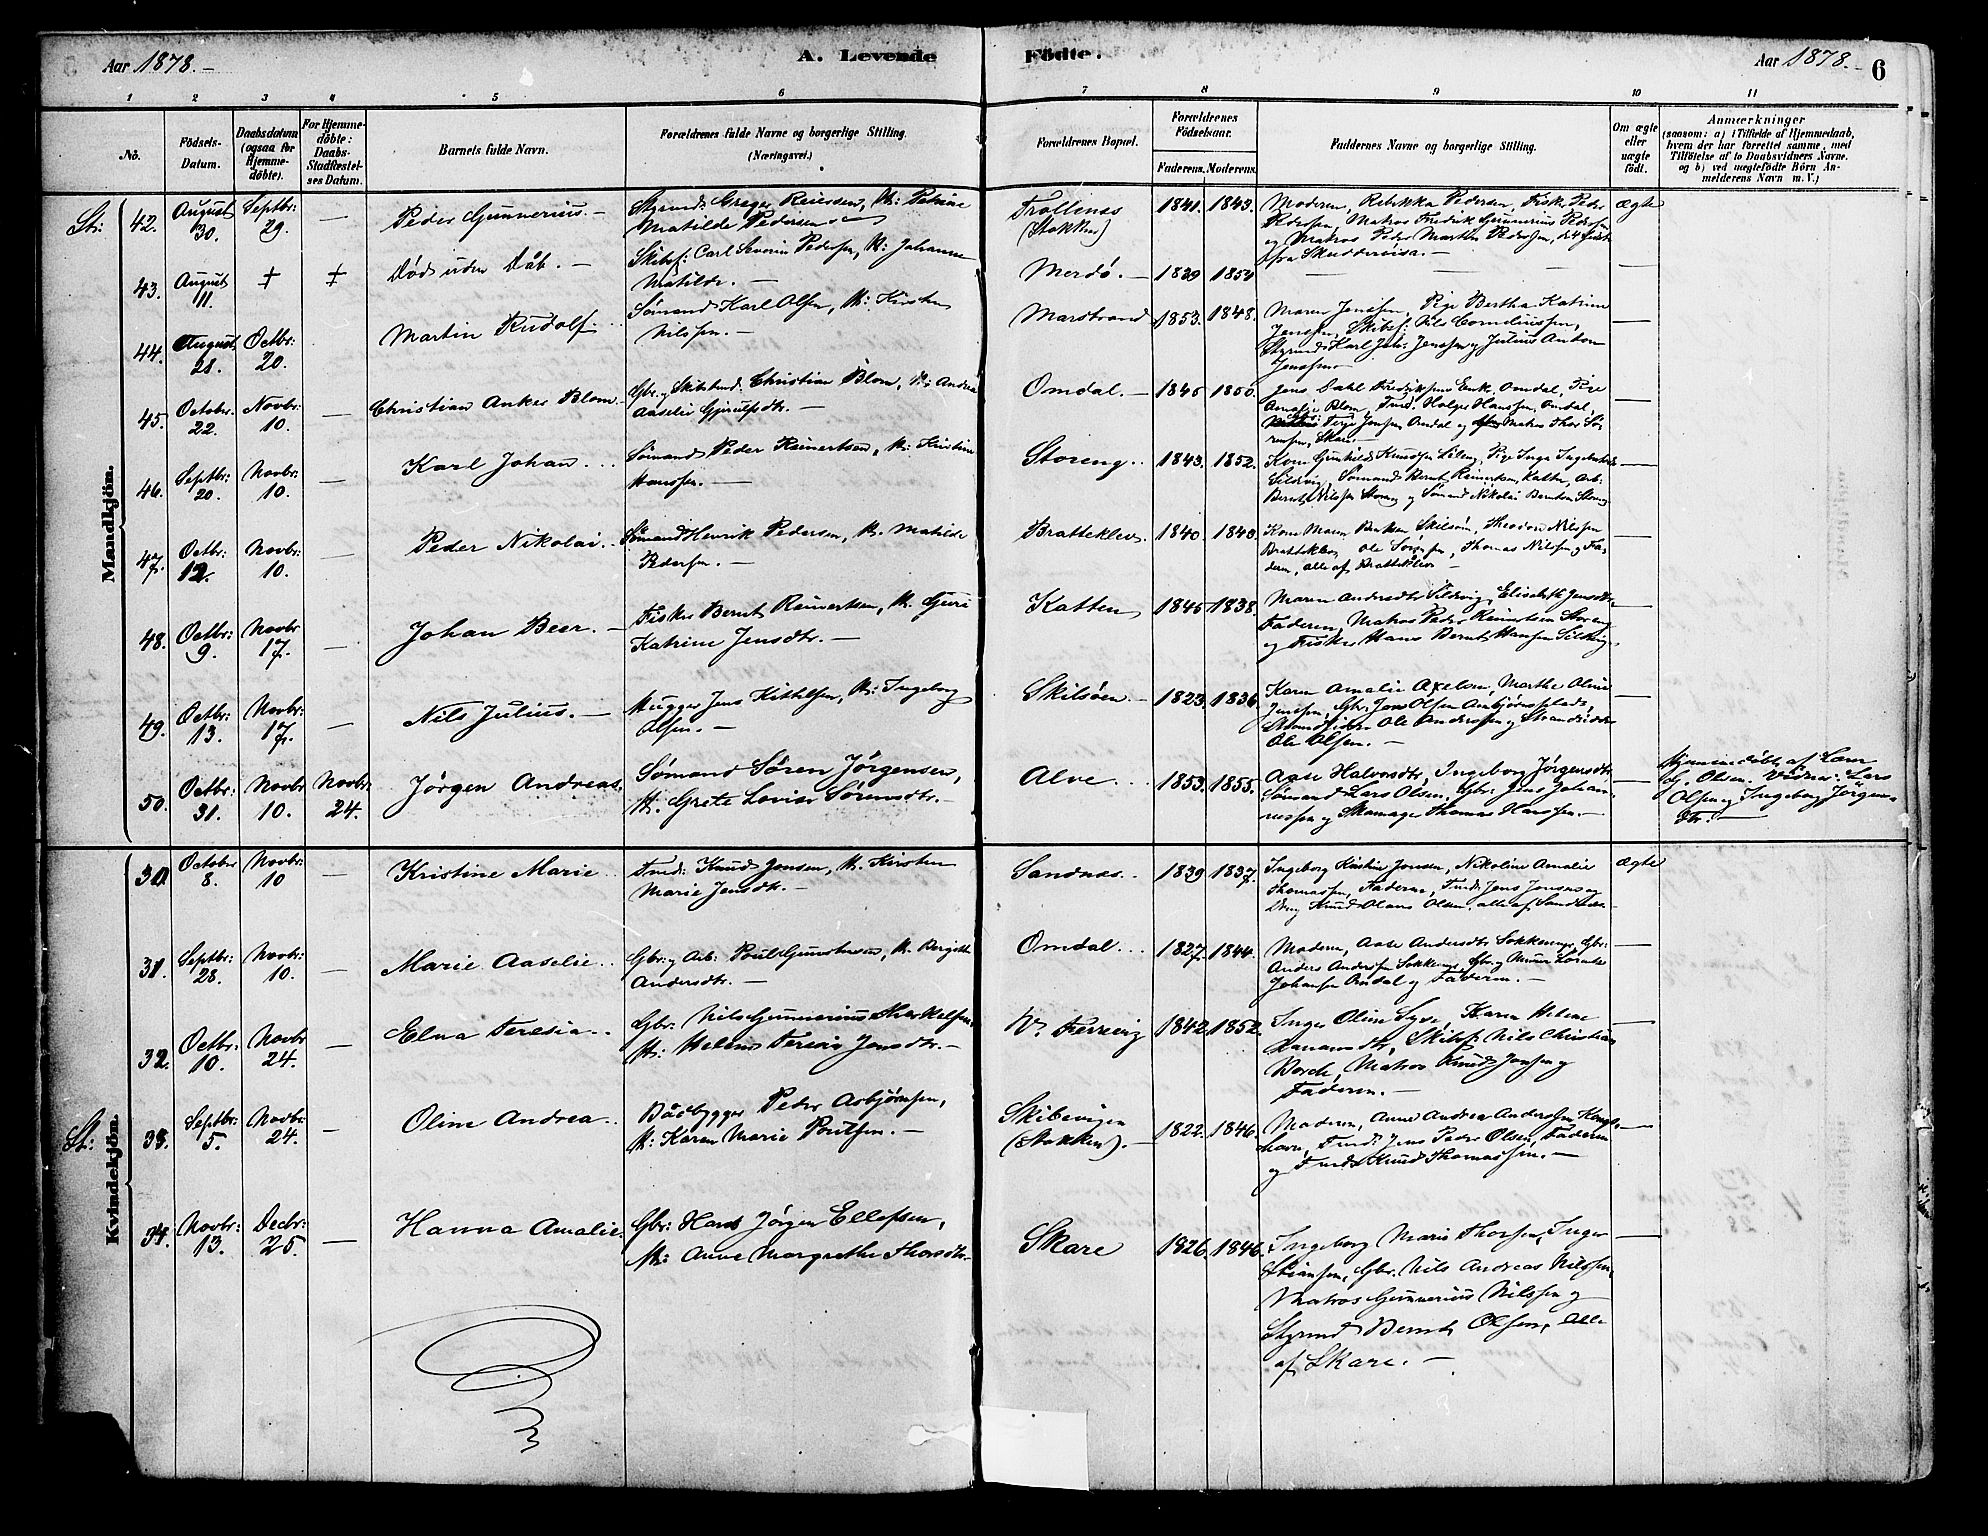 Aar 1878. —
A. Levende
Födte.
Aar 1878. —
6
1 2 3 4 5 6 7 8 9 10 11
No.
Födsels-
Datum.
Daabsdatum
(ogsaa for
Hjemme-
döbte).
For Hjemme-
döbte:
Daabs-
Stadfæstel-
ses Datum.
Barnets fulde Navn.
Forældrenes fulde Navne og borgerlige Stilling.
(Næringsvei.)
Forældrenes Bopæl.
Forældrenes
Födselsaar.
Faderens. Moderens.
Faddernes Navne og borgerlige Stilling.
Om ægte
eller
uægte
födt.
Anmærkninger
(saasom: a) i Tilfælde af Hjemmedaab,
hvem der har forrettet samme, med
Tilföielse af to Daabsvidners Navne.
og b) ved uægtefödte Börn An-
melderens Navn m. V.)
Mandkjön.
St:
42. August 30. Septbr: 29. — Peder Gunnerius. —
Styrmd: Greger Reiersen, H: Petrine
Matilde Pedersen
Trollenæs
(Stokken)
1841. 1843.
Moderen, Rebekka Pedersen, Fisk: Peder
Pedersen, Matros Fredrik Gunnerius Pedersen
og Matros Peder Martin Pedersen, de 4 sidste
fra Skudderøisa. —
ægte
43. August 11. + + Död uden Dåb. —
Skibsf: Carl Severin Pedersen, H: Johanne
Matilde. —
Merdö. — 1829 1854 — — — —
44. August 28. Octbr: 20. Martin Rudolf.
Sömand Karl Olsen, H: Kirsten
Nilssen. —
Marstrand 1853. 1848.
Maren Jenssen, Pige Bertha Katrine
Jenssen, Skibsf: Nils Corneliussen,
Styrmd: Karl Joh: Jenssen og Julius Anton
Jenssen
—
45. Octobr. 22. Novbr: 10. — Christian Anker Blom. —
Gbr. og Skibstmd: Christian Blom, H: Andrea
Aaselie Gjerulfsdtr. —
Omdal. — 1845 1850.
Jens Dahl Fredriksens Enke, Omdal, Pige
Amalie Blom, Tmd. Holger Hanssen, Omdal,
Terje Jensen, Omdal og Matros Thor Sö-
rensen, Skare
—
46. Septbr: 20. Novbr: 10. — Karl Johan
Sömand Peder Reinertsen, H. Kristine
Hanssen. —
Storeng. 1843. 1852.
Kone Gunhild Knudsen Silleng, Pige Inga Ingebertsdtr
Sildvig, Sömand Bernt Reinertsen, Katten, Arb.
Bernt Nilssen Storeng og Sömand Nikolai Berntsen Storeng
—
47. Octbr: 12. Novbr: 10. — Peder Nikolai
Sömand Henrik Pedersen, H. Matilde
Pedersen. —
Bratteklev. 1840. 1840.
Kone Maren Bentsen Skilsöen, Theodor Nilssen
Bratteklev, Ole Sörensen, Thomas Nilssen og Fa-
deren, alle af Bratteklev —
—
48. Octbr: 9. Novbr 17. — Johan Beer. —
Fisker Bernt Reinertsen, H. Guri
Katrine Jensdtr. —
Katten 1845 1838.
Maren Andersdtr Sildvig, Elisabeth Jensdtr,
Faderen, Matros Peder Reinertsen Storeng
og Fisker Hans Bernt Hansen Sildvig.
—
49. Octbr: 13. Novbr: 17. — Nils Julius. —
Hugger Jens Kittilsen, H: Ingeborg
Olsen. —
Skilsöen 1823. 1836.
Karen Amalie Axelsen, Marthe Oline
Jenssen, Gbr. Jens Olsen Anbjörnsplads,
Strandsidder Ole Anderssen og Strandsidder
Ole Olsen. —
—
50. Octbr: 31. Novbr 10. Novbr: 24. Jörgen Andreas.
Sömand Sören Jörgensen,
H. Grete Lovise Sörensdtr. —
Alve 1853. 1855.
Aase Halvorsdtr, Ingeborg Jörgensdtr
Sömand Lars Olsen, Gbr: Jens Johan-
nessen og Skomager Thomas Hanssen. —
—
Hjemmedöbt af Lars
G. Olsen. Vidner: Lars
Olsen og Ingeborg Jörgens-
dtr. —
Kvindekjön.
30 October 8. Novbr: 10 — Kristine Marie
Tmd: Knud Jensen, H. Kirsten
Marie Jensdtr. —
Sandnæs. 1839 1837.
Ingeborg Kristine Jensen, Nikoline Amalie
Thomassen, Faderen, Tmd: Jens Jensen og
Dreng Knud Olaus Olsen, alle af Sandnæs.
ægte
31. Septbr: 28. Novbr: 10. — Marie Aaselie
Gbr: og Arb: Poul Gundersen, H. Bergitte
Andersdtr. —
Omdal 1827. 1844.
Moderen, Aase Andersdtr Sokkenes, Gbr:
Anders Anderssen Sokkenes, Gbr. og
Johansen Omdal og Faderen. —
—
32. Octbr: 10. Novbr 24. — Elna Teresia
Gbr: Nils Gunnerius Therkelsen,
H: Helene Terese Jensdtr. —
V. Fevevig 1842. 1852.
Inger Oline Syve, Karen Helene
Skibsf: Nils Christian
Borch, Matros Knud Jensen og
Faderen. —
—
St:
33. Septbr: 5. Novbr: 24. — Oline Andrea
Bådbygger Peder Asbjörnsen,
H: Karen Marie Poulsen. —
Skibevigen
(Stokken). —
1822. 1846.
Moderen, Anne Andrea Anderssen Kongs-
havn, Tmd: Jens Peder Olsen, Faderen
og Tmd: Knud Thomassen. —
—
34. Novbr: 13. Decbr: 25. — Hanna Amalie.
Gbr: Hans Jörgen Ellefsen,
H: Anne Margrethe Thorsdtr.
Skare 1826. 1846.
Ingeborg Marie Thorsen, Inger
Stiansen, Gbr. Nils Andreas Nilssen,
Matros Gunnerius Nilssen og
Styrmd Bernt Olsen, alle
af Skare. —
—